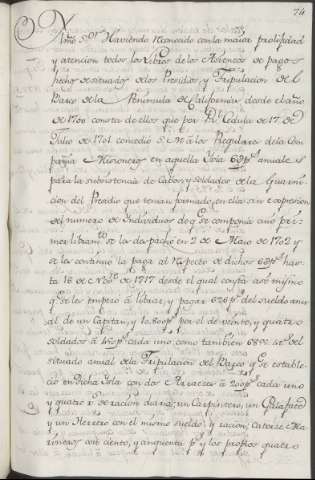 74
Yltmo Sor. Haviendo Reconocido con la maior prolixidad
y atencion todos los Libros de los Asientos de pagos
pechos de situados de los Presidios y Tripulacion del
Barco de la Peninsula de Californias desde el año
de 1700 consta de ellos que por Rl. Cedula de 17 de
Julio de 1701 concedio S. M. a los Regulares de la Com
pañia Misioneros en aquella Isla 6 @ ps. anuales
para la subsistencia de Cabos y soldados de la Guarni
cion del Presidio que tenian formado en ella sin expresion
del numero de Individuos de qe. se componia cuio pri
mer libramto. se les despachó en 2 de Maio de 1702 y
se les continuó la paga al respecto de dichos 6 @ ps. has
ta 16 de Nobre. de 1717 desde el qual consta asi mismo
qe. se les empezó a librar, y pagar ps. del sueldo anu
al de un Capitan, y ps. por el de veinte, y quatro
soldados á ps. cada uno como tambien ps. del
situado anual de la Tripulacion del Barco qe. se estable
cio en dicha Isla con dos Arraeces á ps. cada uno
y quatro rs. de racion diaria, un Carpintero, un Calafate
y un Herrero con el mismo sueldo y racion, Catorce Ma
rineros con ciento, y cinquenta ps. y los propios quatro